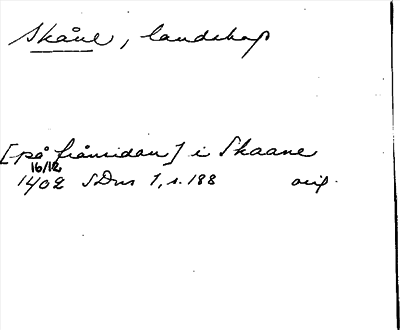 Skåne, landskap
[på frånsidan] i Skaane
16/12
1402 SDns 1, s. 188 orig.